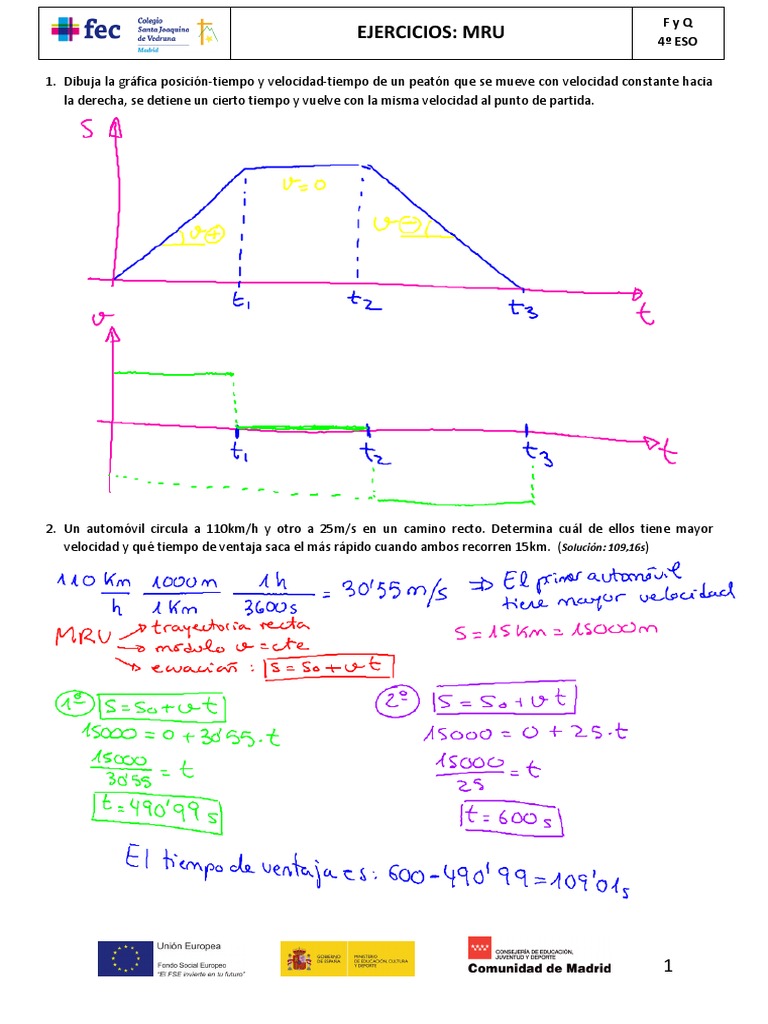 fec
Colegio
Santa Joaquina
de Vedruna
Madrid
EJERCICIOS: MRU
F y Q
4º ESO
1. Dibuja la gráfica posición-tiempo y velocidad-tiempo de un peatón que se mueve con velocidad constante hacia
la derecha, se detiene un cierto tiempo y vuelve con la misma velocidad al punto de partida.
S
v=0
v +
v −
t1 t2 t3 t
v
t1 t2 t3 t
2. Un automóvil circula a 110km/h y otro a 25m/s en un camino recto. Determina cuál de ellos tiene mayor
velocidad y qué tiempo de ventaja saca el más rápido cuando ambos recorren 15km. (Solución: 109,16s)
110 Km/h 1000m/1Km 1h/3600s = 30'55 m/s ⇒ El primer automóvil
tiene mayor velocidad
MRU → trayectoria recta
→ módulo v=cte
→ ecuación: s=so+vt
S=15Km=15000m
1º S=So+vt
15000=0+30'55·t
15000/30'55=t
t=490'99s
2º S=So+vt
15000=0+25·t
15000/25=t
t=600s
El tiempo de ventaja es: 600-490'99=109'01s
Unión Europea
Fondo Social Europeo
"El FSE invierte en tu futuro"
GOBIERNO
DE ESPAÑA
MINISTERIO
DE EDUCACIÓN, CULTURA
Y DEPORTE
CONSEJERÍA DE EDUCACIÓN,
JUVENTUD Y DEPORTE
Comunidad de Madrid
1